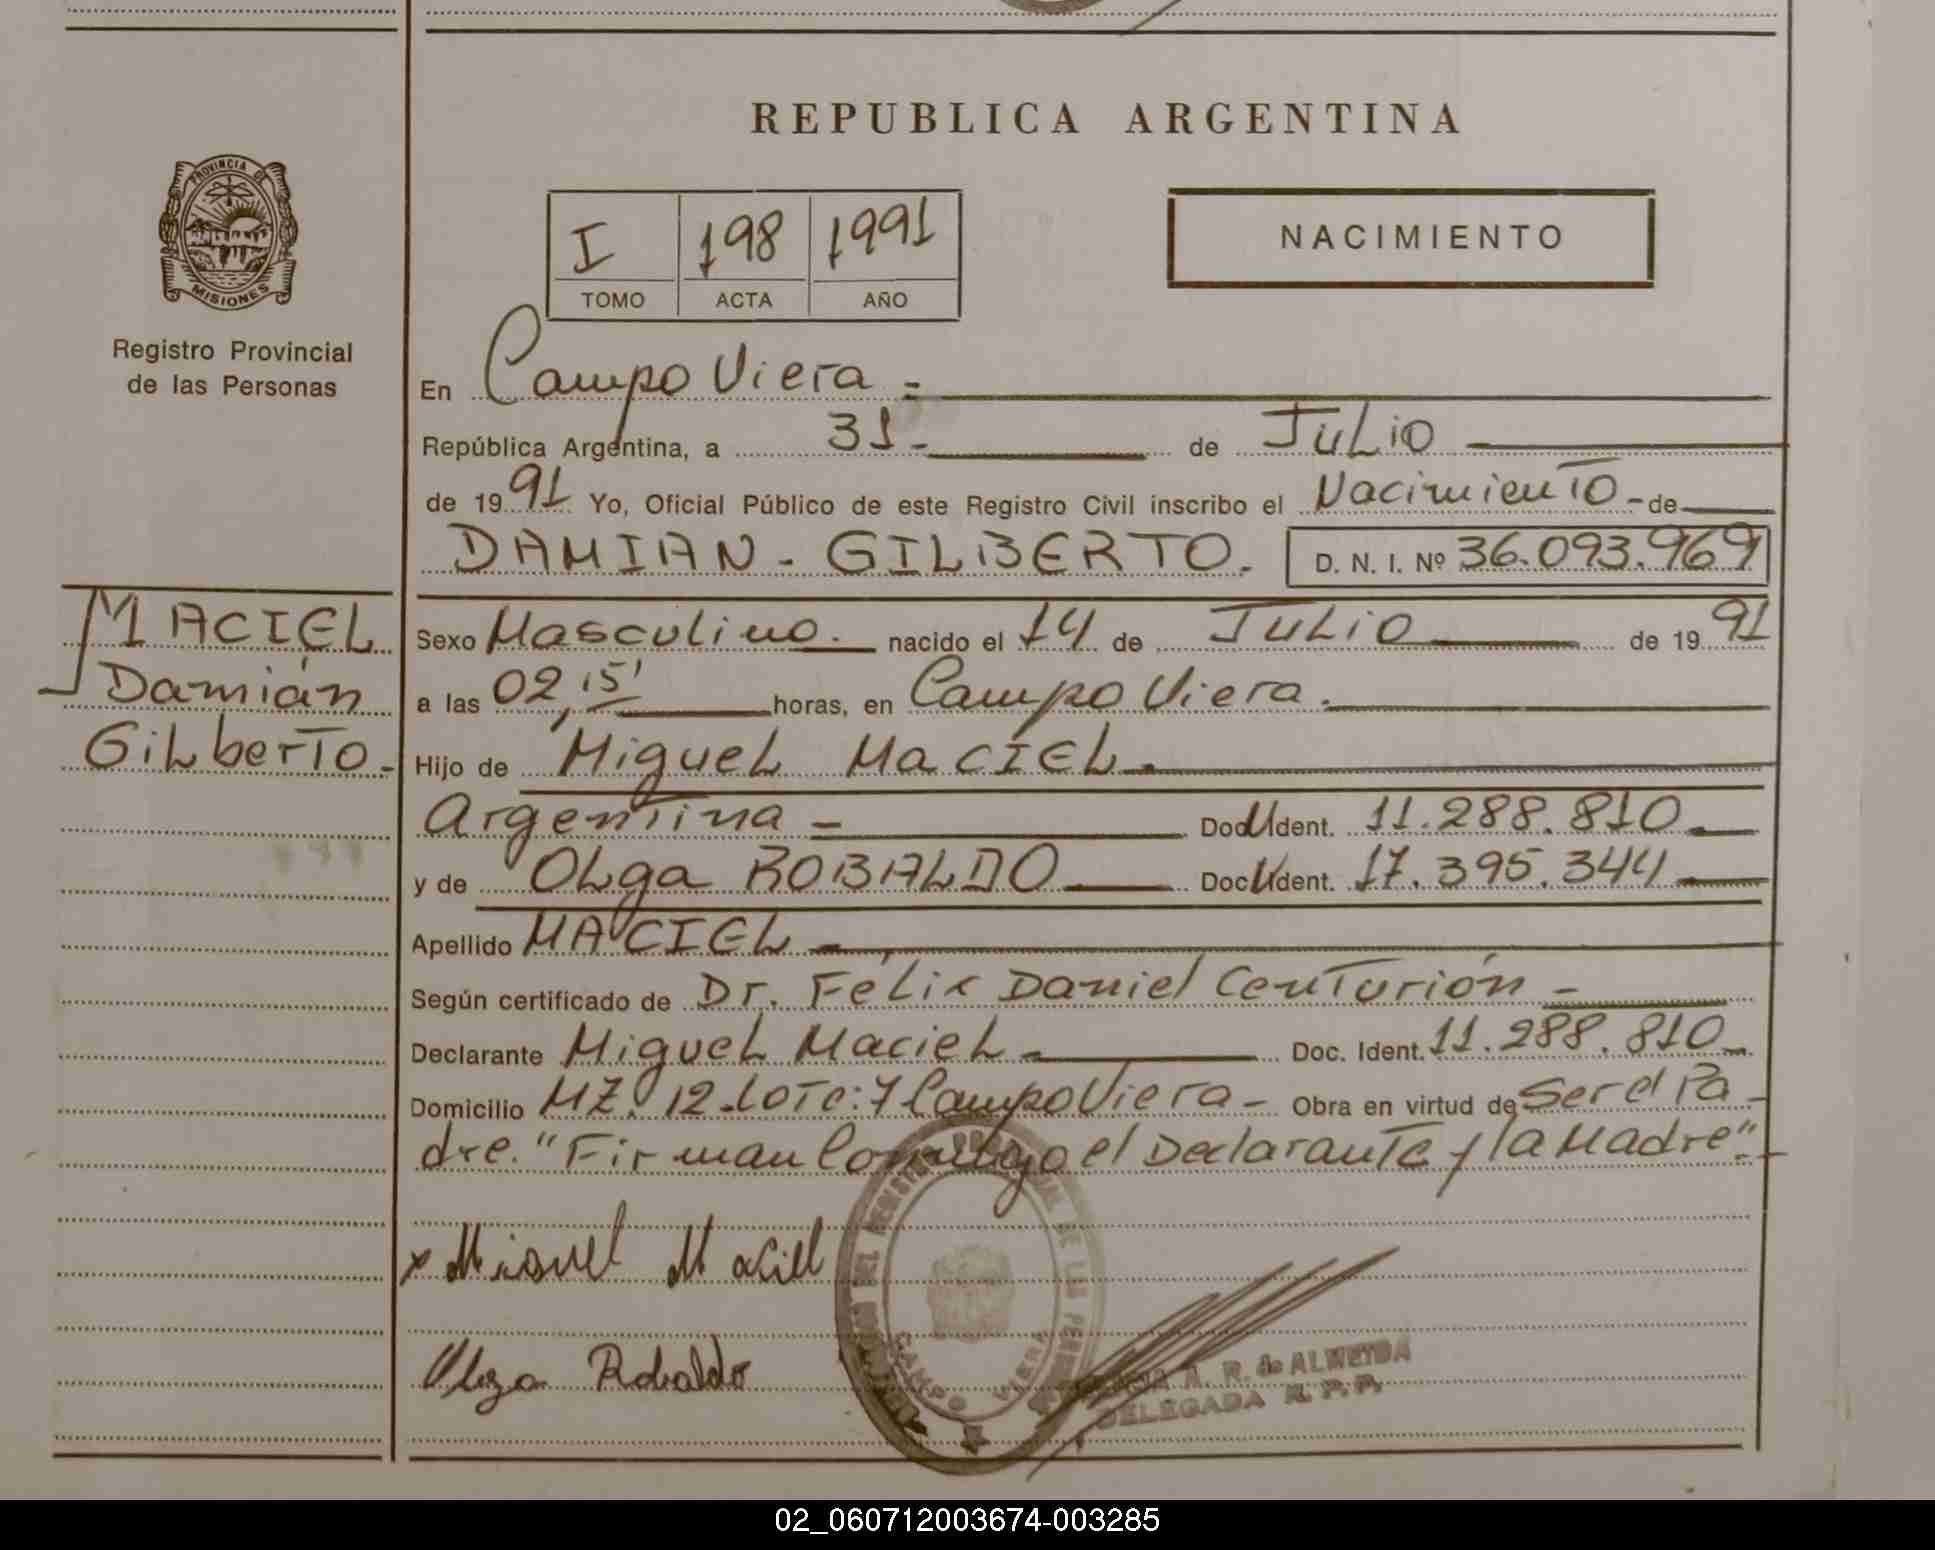 REPUBLICA ARGENTINA
PROVINCIA DE
MISIONES
Registro Provincial
de las Personas
I 198 1991
TOMO ACTA AÑO
NACIMIENTO
En Campo Viera.-
República Argentina, a 31.- de JULIO
de 1991 Yo, Oficial Público de este Registro Civil inscribo el Nacimiento - de
DAMIAN - GILBERTO. D. N. I. Nº 36.093.969
MACIEL
Damián
Gilberto.-
Sexo Masculino. nacido el 14 de JULIO de 1991
a las 02,15' horas, en Campo Viera.
Hijo de Miguel MaCIEL.
Argentina - Doc. U Ident. 11.288.810
y de OLga ROBALDO Doc. U Ident. 17.395.344
Apellido MACIEL
Según certificado de Dr. Félix Daniel Centurión -
Declarante Miguel Maciel - Doc. Ident. 11.288.810
Domicilio MZ. 12-Lote: 7 Campo Viera - Obra en virtud de Ser el Pa-
dre. "Firman Conmigo el Declarante y la Madre".-
x Miguel Maciel
Olga Robaldo
REGISTRO PROVINCIAL DE LAS PERSONAS
CAMPO VIERA
A. R. de ALMEIDA
DELEGADA R. P. P.
02_060712003674-003285